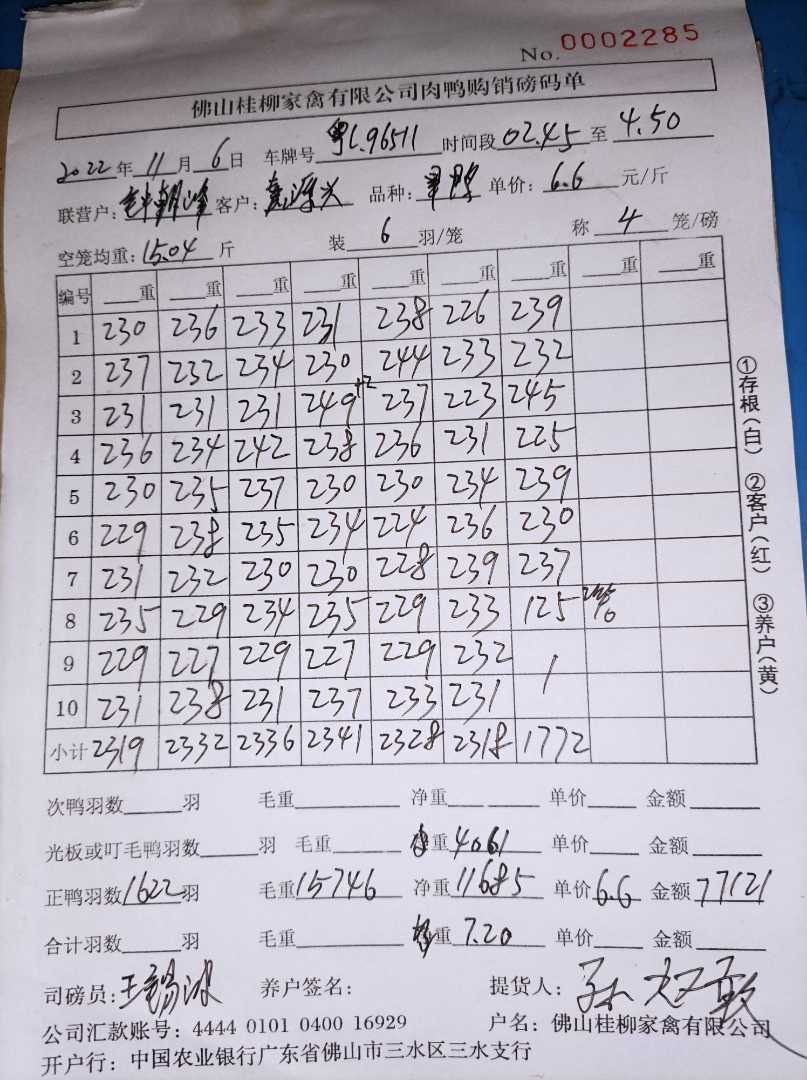 No. 0002285
佛山桂柳家禽有限公司肉鸭购销磅码单
2022年11月6日 车牌号 粤L.96511 时间段 02.45 至 4.50
联营户: 客户: 品种: 单价: 6.6 元/斤
空笼均重: 15.04 斤 装 6 羽/笼 称 4 笼/磅
编号 重 重 重 重 重 重 重 重 重
1 230 236 233 231 238 226 239
2 237 232 234 230 244 233 232
3 231 231 231 249+2 237 223 245
4 236 234 242 238 236 231 225
5 230 235 237 230 230 234 239
6 229 238 235 234 224 236 230
7 231 232 230 230 228 239 237
8 235 229 234 235 229 233 125
9 229 227 229 227 229 232
10 231 238 231 237 233 231
小计 2319 2332 2336 2341 2328 2318 1772
次鸭羽数 羽 毛重 净重 单价 金额
光板或叮毛鸭羽数 羽 毛重 重 4061 单价 金额
正鸭羽数 1622 羽 毛重 15746 净重 11685 单价 6.6 金额 77121
合计羽数 羽 毛重 重 7.20 单价 金额
司磅员: 王锡冰 养户签名: 提货人:
公司汇款账号: 4444 0101 0400 16929 户名: 佛山桂柳家禽有限公司
开户行: 中国农业银行广东省佛山市三水区三水支行
①存根(白) ②客户(红) ③养户(黄)